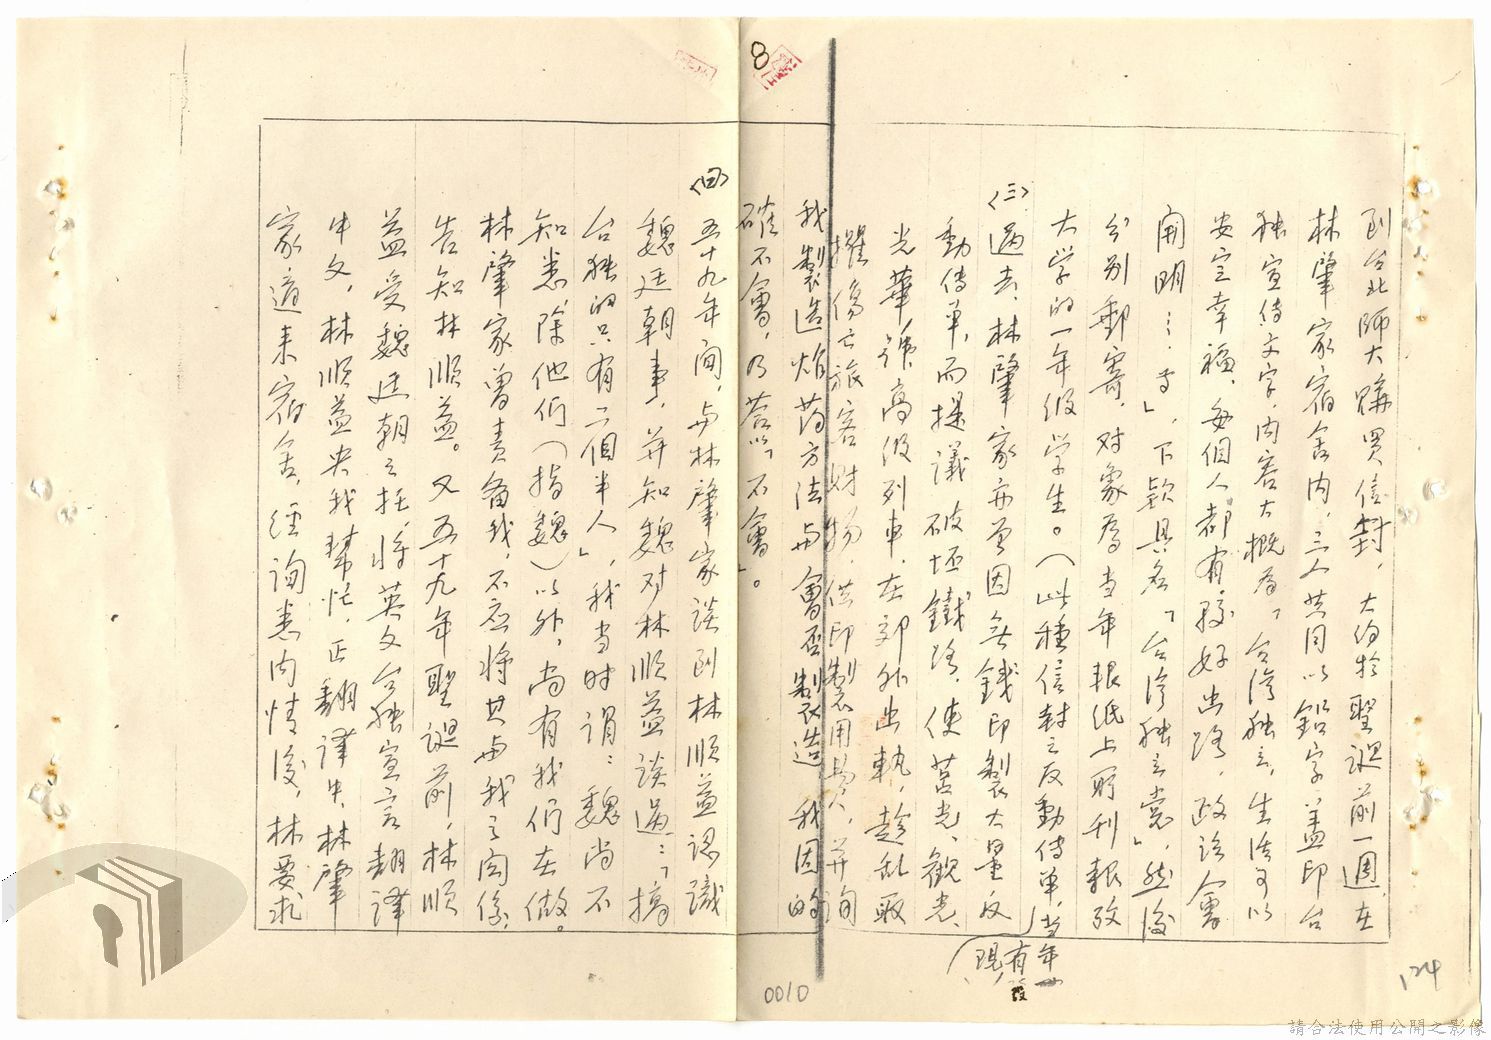 到台北師大購買信封，大約於聖誕前一週，在
林肇家宿舍內，三人共同以鉛字蓋印台
独宣传文字，內容大概為「台湾独立，生活可以
安定幸福，每個人都有較好出路，政治會
開明……等」，下款具名「台湾独立党」，然後
分別郵寄，对象為当年報紙上所刊報攷
大学的一年级学生。（此種信封之反動传单，当年
有
現
〈三〉過去，林肇家亦曾因無錢印製大量反
動传单，而提議破坏鐵路，使莒光、觀光、
光華号高级列車，在郊外出軌，趁乱取
攫傷亡旅客財物，供印製用，并詢
我製造炸药方法与會否製造 我因的
確不會，乃答以「不會」。
〈四〉五十九年间，与林肇家談到林順益認識
魏廷朝事，并知魏对林順益談過：「搞
台独的只有二個半人」，我当时谓：魏尚不
知悉除他们（指魏）以外，尚有我们在做。
林肇家曾责备我，不应将其与我之関係，
告知林順益。又五十九年聖誕前，林順
益受魏廷朝之托，将英文台独宣言翻譯
中文，林順益央我幫忙，正翻譯中，林肇
家適来宿舍，經詢悉內情後，林要求
8
0010
124
請合法使用公開之影像